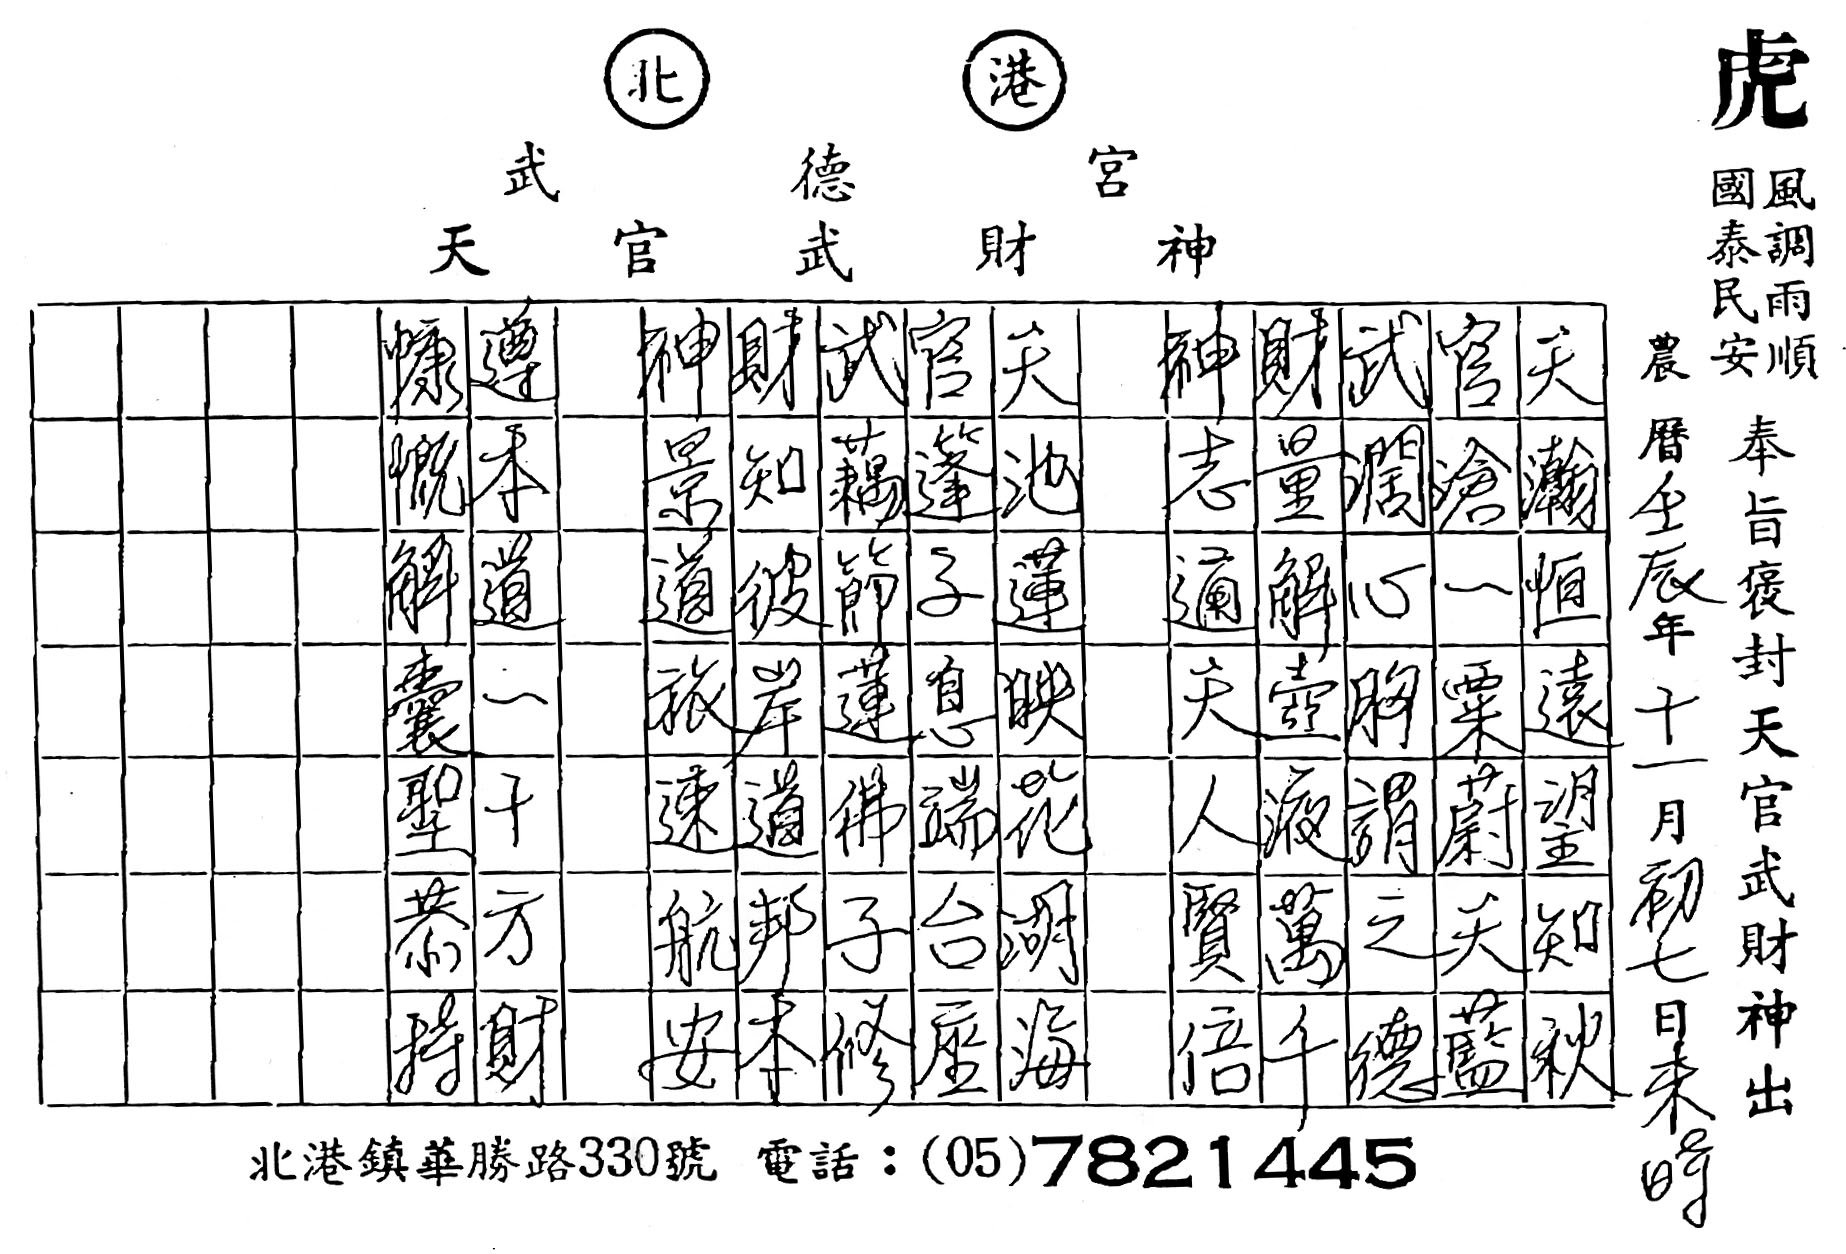 北港
武德宮
天官武財神
虎
風調雨順
國泰民安
奉旨褒封天官武財神出
農曆壬辰年十一月初七日未時
天瀚恒遠望知秋
官滄一粟蔚天藍
武濶心胸謂之德
財量解壺液萬千
神志邇天人賢倍
天池蓮映花湖海
官篷子息端台座
武藕節蓮佛子修
財知彼岸道邦本
神景道旅速航安
遵本道一十方財
慷慨解囊聖恭持
北港鎮華勝路330號 電話：(05)7821445